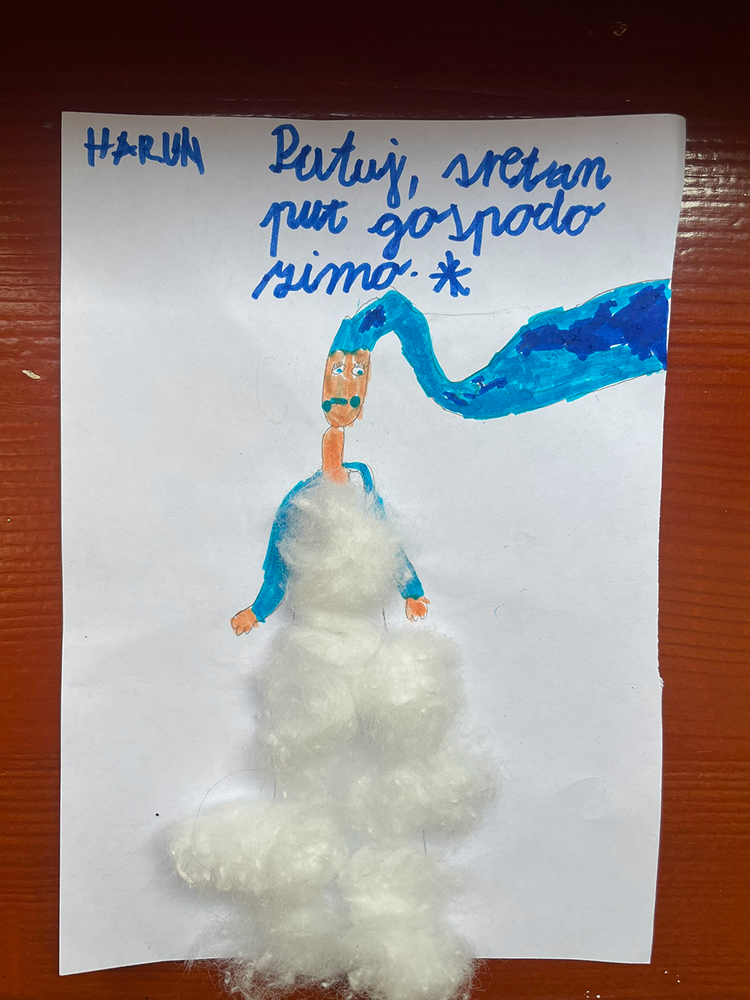 HARUN
Putuj, sretan
put gospođo
zimo. *